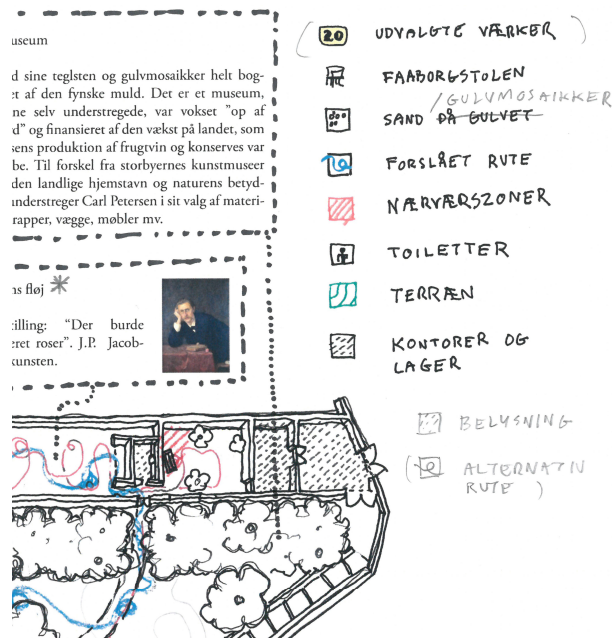 useum
d sine teglsten og gulvmosaikker helt bog-
et af den fynske muld. Det er et museum,
ne selv understregede, var vokset ”op af
d” og finansieret af den vækst på landet, som
sens produktion af frugtvin og konserves var
be. Til forskel fra storbyernes kunstmuseer
den landlige hjemstavn og naturens betyd-
understreger Carl Petersen i sit valg af materi-
rapper, vægge, møbler mv.
ns fløj
tilling: “Der burde
eret roser”. J.P. Jacob-
kunsten.
( 20 UDVALGTE VÆRKER )
FAABORGSTOLEN
/GULVMOSAIKKER
SAND PÅ GULVET
FORSLÅET RUTE
NÆRVÆRSZONER
TOILETTER
TERRÆN
KONTORER OG
LAGER
BELYSNING
( ALTERNATIV
RUTE )